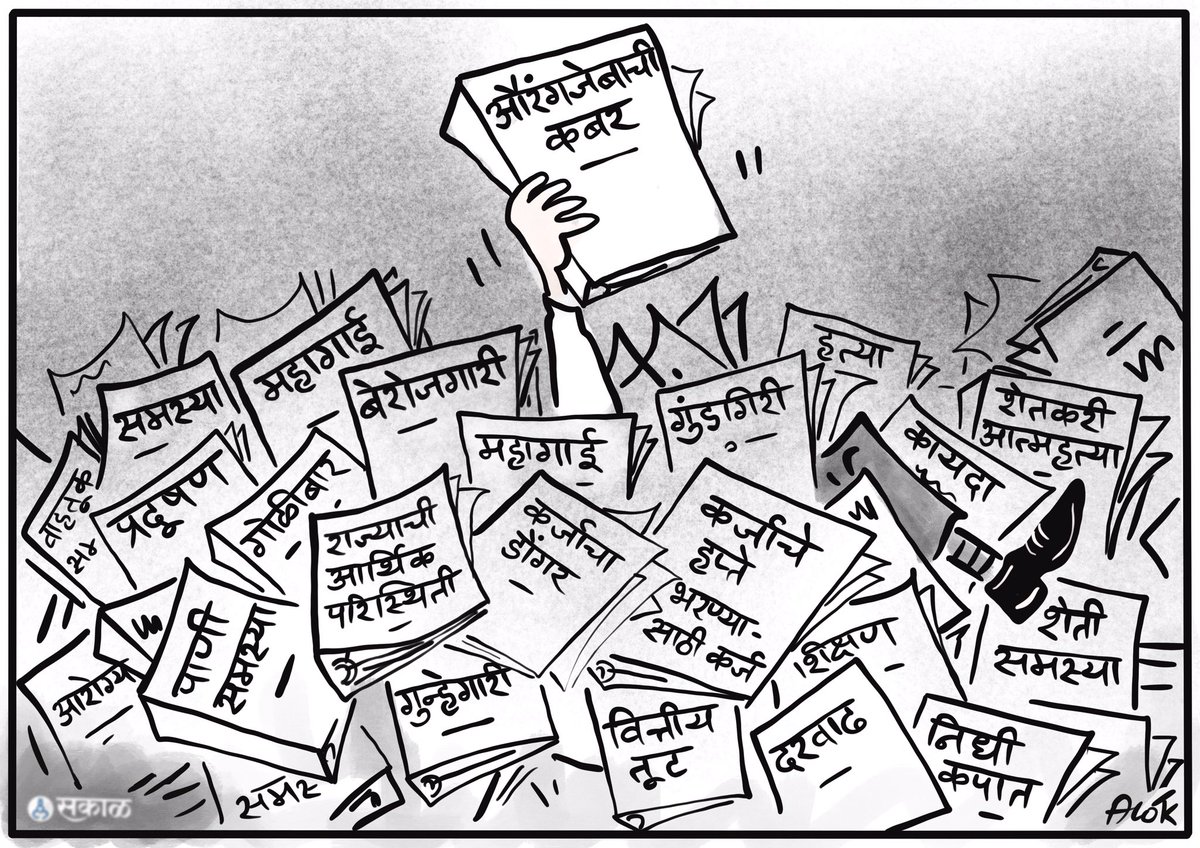 औरंगजेबाची
कबर
महागाई
हत्या
समस्या
बेरोजगारी
गुंडगिरी
शेतकरी
आत्महत्या
महागाई
कायदा
वाहतूक
प्रदूषण
गोळीबार
राज्याची
आर्थिक
परिस्थिती
कर्जाचा
डोंगर
कर्जाचे
हप्ते
भरण्या-
साठी कर्ज
पाणी
समस्या
शिक्षण
शेती
समस्या
आरोग्य
गुन्हेगारी
वित्तीय
तूट
दरवाढ
निधी
कपात
समस
सकाळ
ALOK